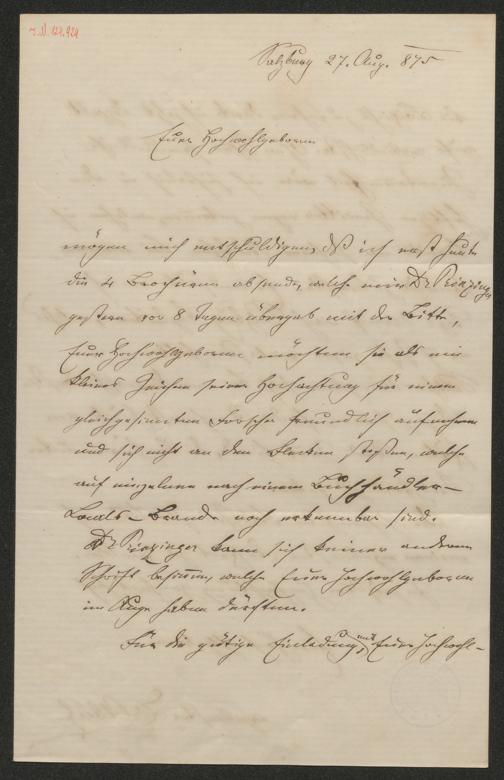 I.N. 124.924
Salzburg 27. Aug. 875
Euer Hochwohlgeboren
mögen mich entschuldigen, dß ich erst heute
die 4 Brochüren absende, welche mir Dr Prinzinger
gestern vor 8 Tagen übergab mit der Bitte,
Euer Hochwohlgeboren möchten sie als ein
kleines Zeichen seiner Hochachtung für einen
gleichgesinnten Forscher freundlich aufnehmen
und sich nicht an den Flecken stoßen, welche
auf einzelnen nach einem Buchhändler-
Locals-Brande noch erkennbar sind.
Dr Prinzinger kann sich keiner anderen
Schrift besinnen, welche Euer Hochwohlgeboren
im Auge haben dürften.
Für die gütige Einladung, mit Euer Hochwohl-